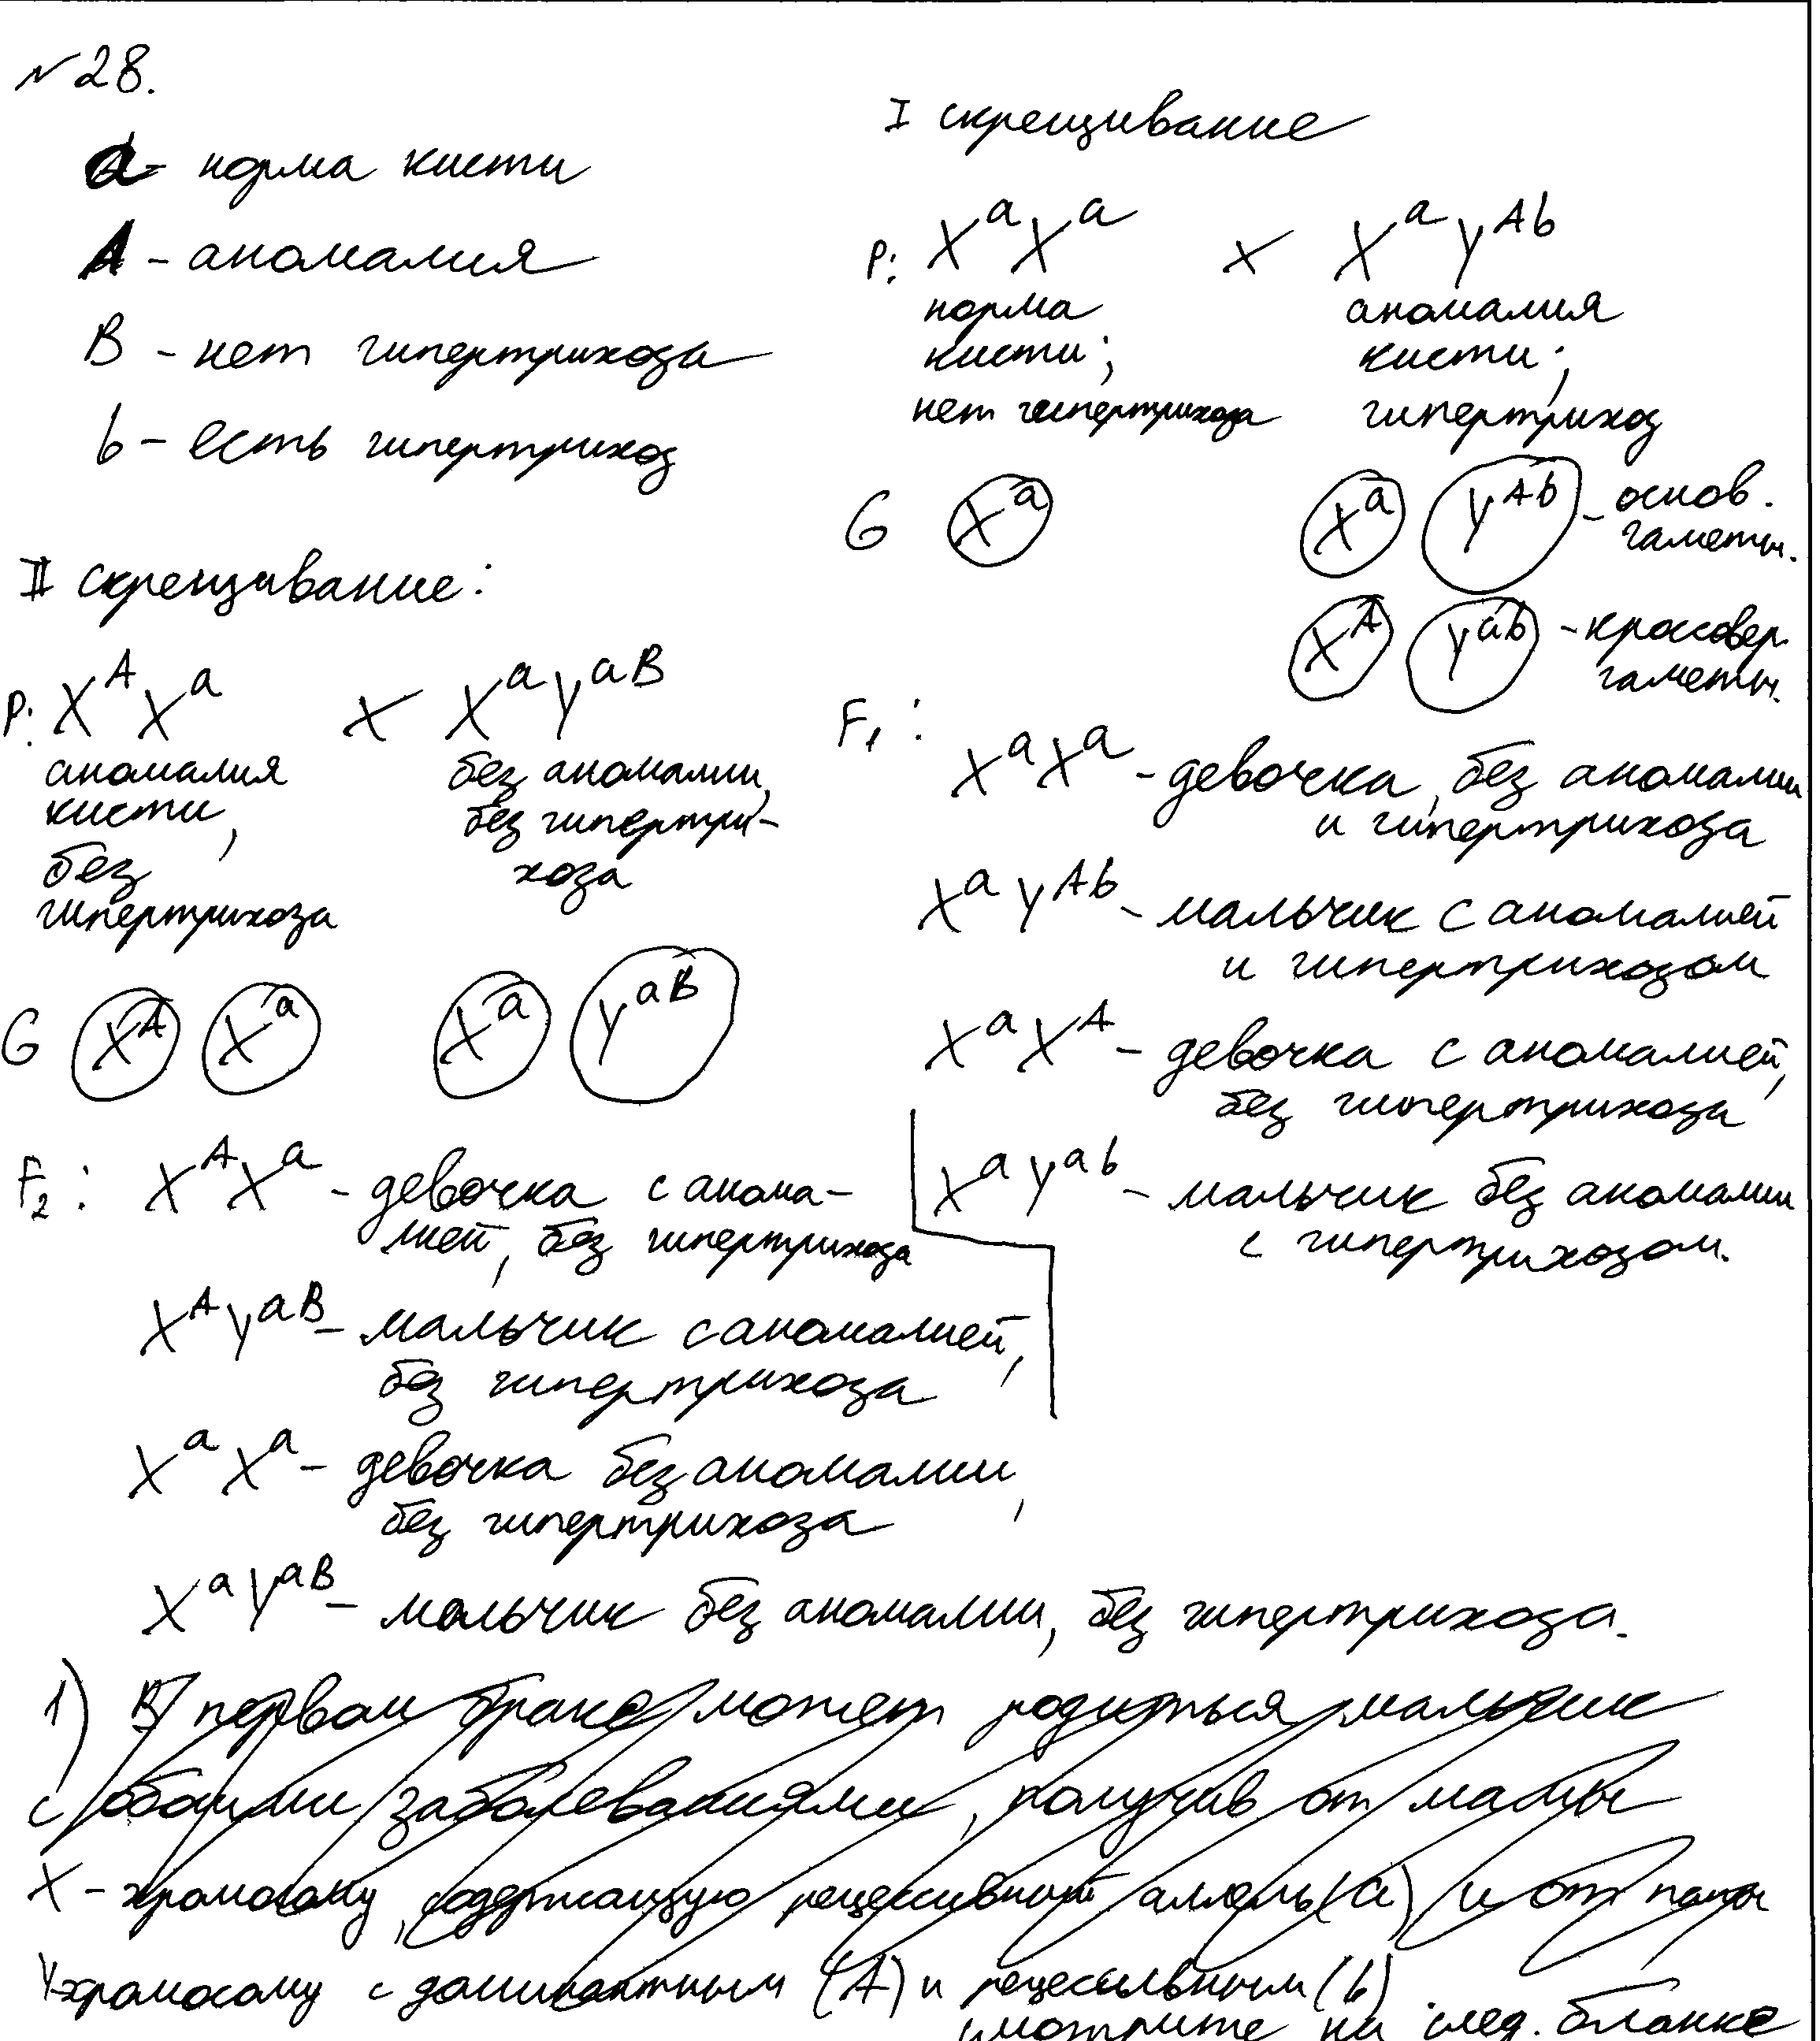 №28.
a - норма кисти
A - аномалия
B - нет гипертрихоза
b - есть гипертрихоз
I скрещивание
P: XᵃXᵃ × XᵃYᴬᵇ
норма кисти; нет гипертрихоза
аномалия кисти; гипертрихоз
G Xᵃ Xᵃ Yᴬᵇ - основ. гаметы.
Xᴬ Yᵃᵇ - кроссовер. гаметы.
F₁:
XᵃXᵃ - девочка, без аномалии
и гипертрихоза
XᵃYᴬᵇ - мальчик с аномалией
и гипертрихозом
XᵃXᴬ - девочка с аномалией,
без гипертрихоза
XᵃYᵃᵇ - мальчик без аномалии
с гипертрихозом.
II скрещивание:
P: XᴬXᵃ × XᵃYᵃᴮ
аномалия кисти, без гипертрихоза
без аномалии, без гипертри-
хоза
G Xᴬ Xᵃ Xᵃ Yᵃᴮ
F₂: XᴬXᵃ - девочка с анома-
лией, без гипертрихоза
XᴬYᵃᴮ - мальчик с аномалией,
без гипертрихоза
XᵃXᵃ - девочка без аномалии,
без гипертрихоза
XᵃYᵃᴮ - мальчик без аномалии, без гипертрихоза.
1) В первом браке может родиться мальчик
с обоими заболеваниями, получив от мамы
X - хромосому, содержащую рецессивный аллель (a) и от папы
Y-хромосому с доминантным (A) и рецессивным (b)
смотрите на след. бланке